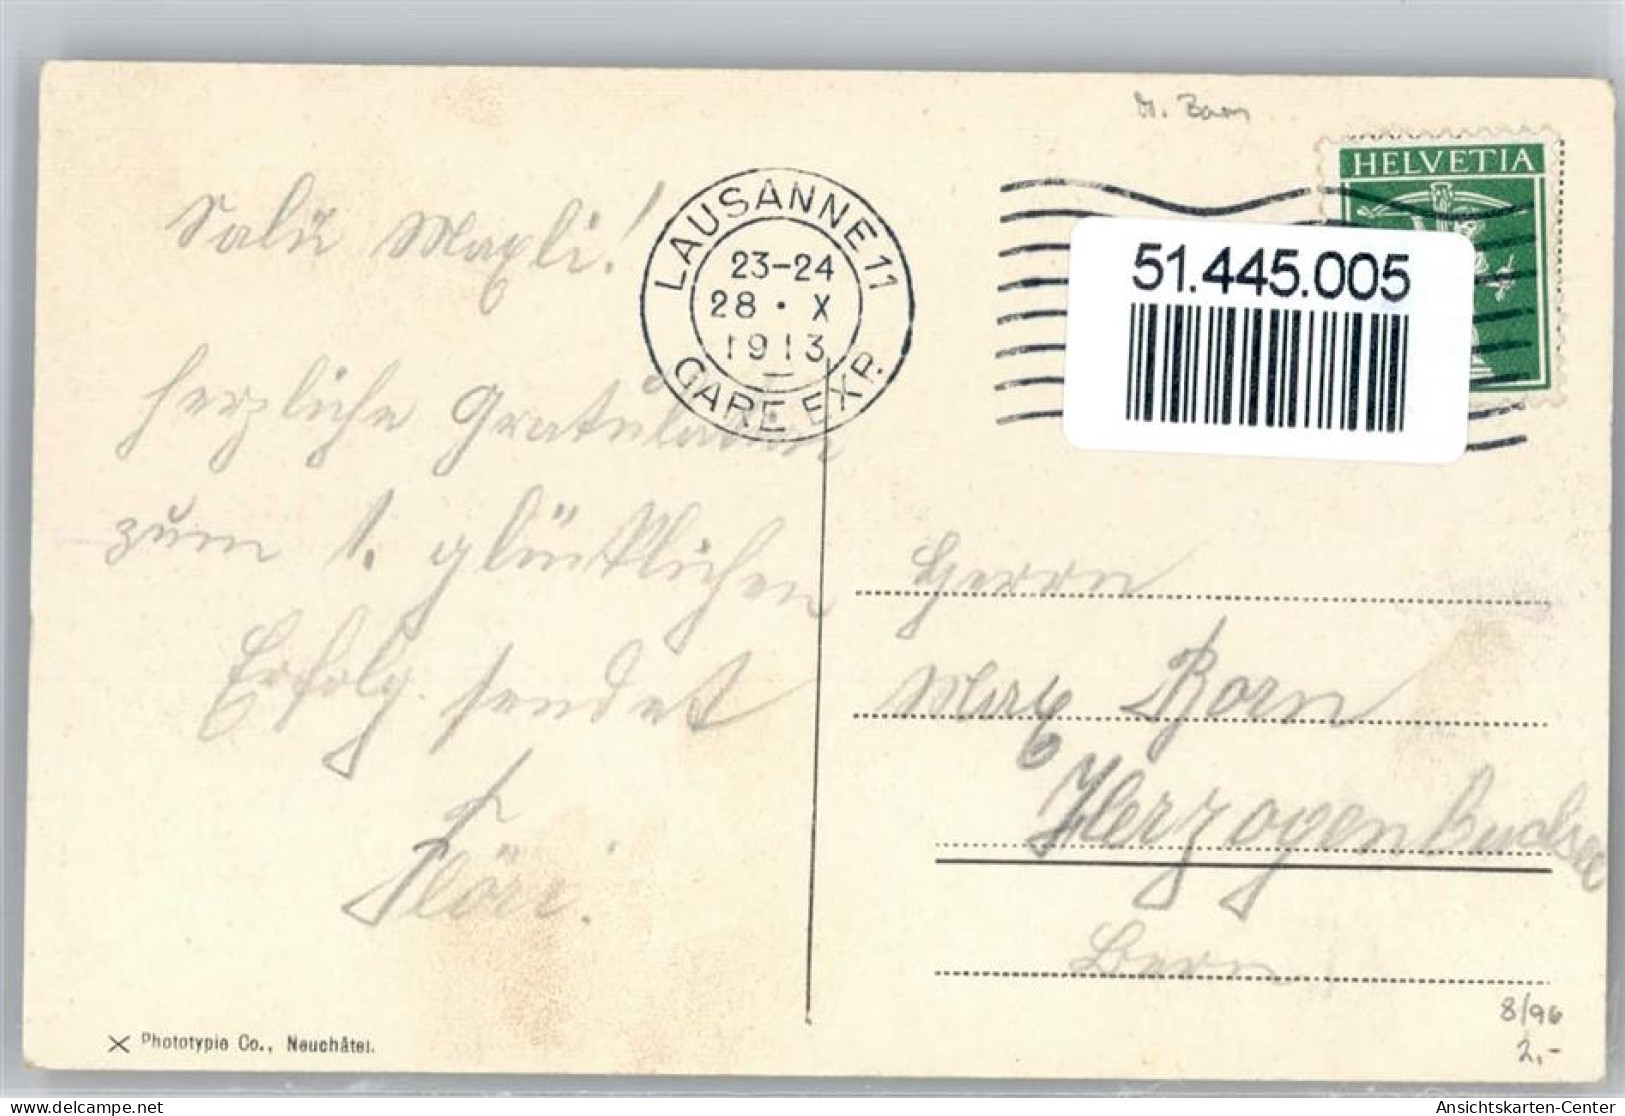 M. Born
HELVETIA
LAUSANNE 11
23-24
28 • X
1913
GARE EXP.
51.445.005
Salü Maxli!
herzliche Gratulation
zum 1. glücklichen
Erfolg sendet
Flöri.
Herrn
Max Born
Herzogenbuchsee
Bern
8/96
2,-
Phototypie Co., Neuchâtel.
Ansichtskarten-Center
delcampe.net